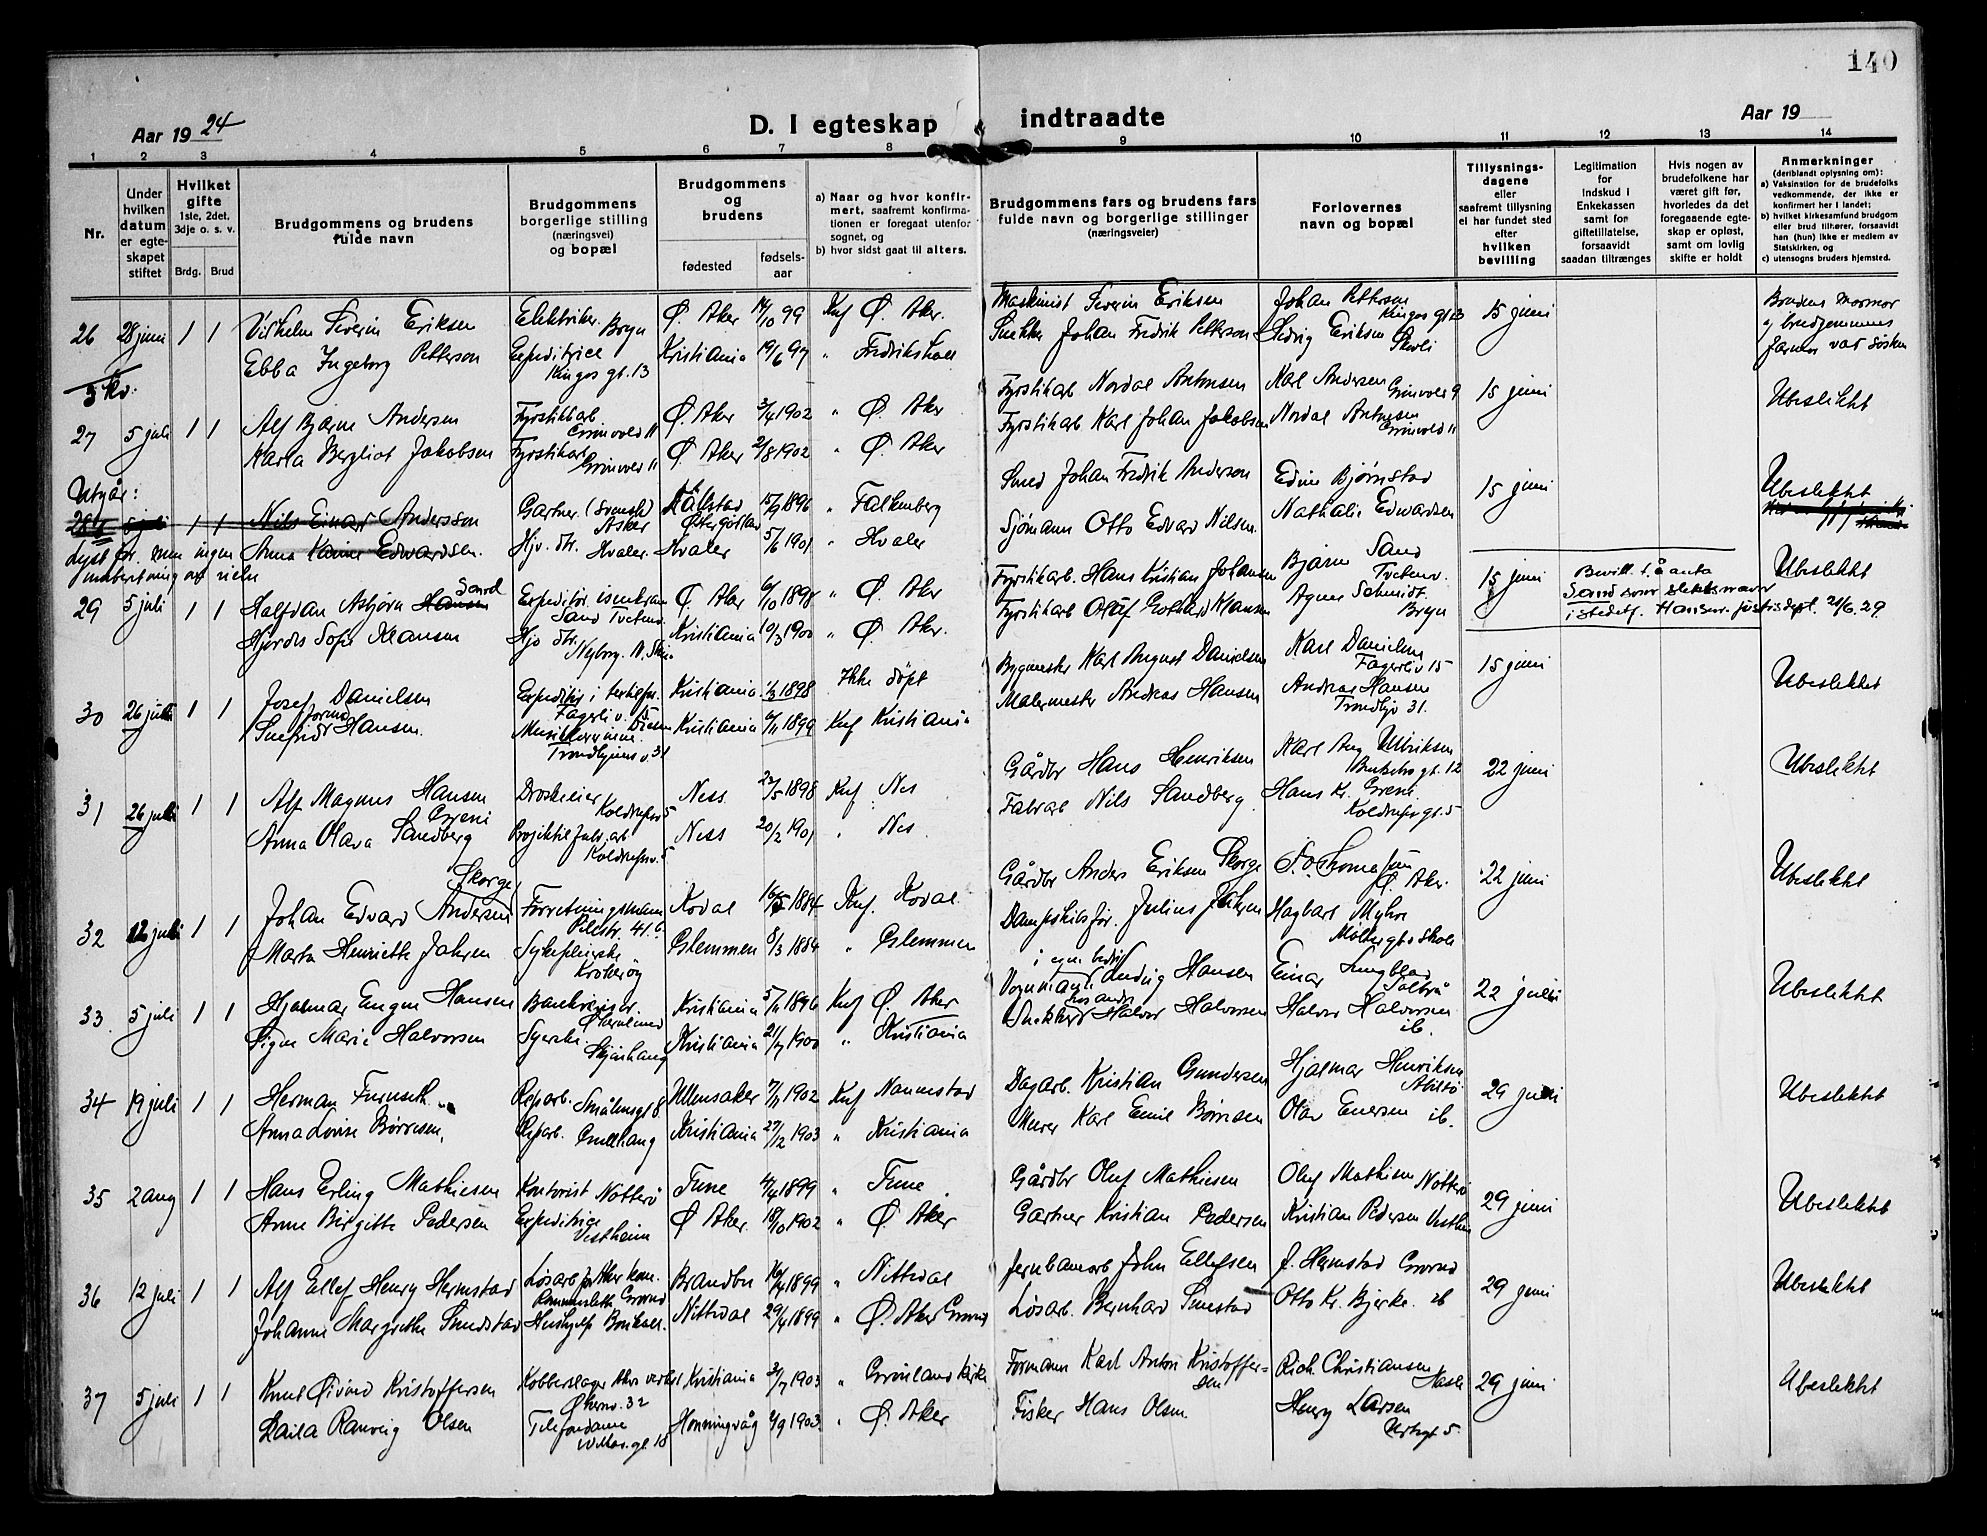 140
Aar 19 24
D. I egteskap indtraadte
Aar 19
1 2 3 4 5 6 7 8 9 10 11 12 13 14
Nr.
Under hvilken datum er egteskapet stiftet
Hvilket gifte
1ste, 2det, 3dje o. s. v.
Brdg. Brud
Brudgommens og brudens fulde navn
Brudgommens borgerlige stilling (næringsvei) og bopæl
Brudgommens og brudens
fødested
fødselsaar
a) Naar og hvor konfirmert, saafremt konfirmationen er foregaat utenfor sognet, og
b) hvor sidst gaat til alters.
Brudgommens fars og brudens fars fulde navn og borgerlige stillinger (næringsveier)
Forlovernes navn og bopæl
Tillysningsdagene eller saafremt tillysning ei har fundet sted efter hvilken bevilling
Legitimation for Indskud i Enkekassen samt for giftetillatelse, forsaavidt saadan tiltrænges
Hvis nogen av brudefolkene har været gift før, hvorledes da det foregaaende egteskap er opløst, samt om lovlig skifte er holdt
Anmerkninger (deriblandt oplysning om):
a) Vaksination for de brudefolks vedkommende, der ikke er konfirmert her i landet;
b) hvilket kirkesamfund brudgom eller brud tilhører, forsaavidt han (hun) ikke er medlem av Statskirken, og
c) utensogns bruders hjemsted.
26 28 juni 1 1 Vilhelm Severin Eriksen Elektriker. Bryn Ø. Aker 14/10 99 Knf Ø. Aker. Maskinist Severin Eriksen Johan Petterson Kingos gt 13 15 juni Brudens mormor
Ebba Ingeborg Petterson Expeditrice Kingos gt. 13 Kristiania 19/6 97 " Fredrikshall Snekker Johan Fredrik Petterson Hedvig Eriksen og brudgommens farmor var søsken
27 5 juli 1 1 Alf Bjarne Andersen Fyrstikkarb. Grinvold 11 Ø. Aker 3/4 1902 " Ø. Aker Fyrstikarb Nordal Antonsen Karl Andersen Grinvoll 9 15 juni Ubeslektet
Karla Bergliot Jakobsen Fyrstikkarb Grinvold 11 Ø. Aker 21/8 1902 " Ø. Aker Fyrstikarb Karl Johan Jakobsen Nordal Antonsen Grinvold 11
Utgår:
28 5 juli 1 1 Nils Einar Andersson Gartner (svensk) Asker Källstad Østergötland 15/9 1896 " Falkenberg Smed Johan Fredrik Anderson Edvin Bjørnstad 15 juni Ubeslektet
Anna Karine Edwardsen. Hjv. dtr. Hvaler. Hvaler 5/6 1901 " Hvaler Sjømann Otto Edvard Nilsen Nathalie Edwardsen
lyst for men ingen innberetning om vielse
29 5 juli 1 1 Halfdan Asbjørn Hansen Sand Expeditør Sand Tvetenv. Ø. Aker 6/10 1898 " Ø. Aker Fyrstikarb. Hans Kristian Johansen Bjarne Sand Tvetenv. 15 juni Bevill. t. å anta Sand som slektsnavn istedetf. Hansen. justisdept. 21/6. 29. Ubeslektet
Hjørdis Sofie Klausen Hjv dtr. Nyborg. Kristiania 10/3 1900 " Ø. Aker. Fyrstikarb Oluf Gotthard Klausen Agnes Schmidt. Bryn
30 26 juli 1 1 Josef Danielsen Fagerli v. 15 Kristiania 1/3 1898 Ikke døpt Bygmester Karl August Danielsen Karl Danielsen Fagerli v 15 15 juni Ubeslektet
Snefrid Hansen. Trondhjems v. 31 Kristiania 6/11 1899 Knf Kristiania Malermester Andreas Hansen Andreas Hansen Trondhjv 31.
31 26 juli 1 1 Alf Magnus Hansen Greni Droskeeier Ness 27/5 1898 Knf. Nes Gårdbr Hans Henriksen Karl Aug Ulriksen 22 juni Ubeslektet
Anna Olava Sandberg Ness 20/2 1901 " Nes Fabrarb Nils Sandberg Hans Kr. Greni
32 12 juli 1 1 Johan Edvard Andersen Skorge Forretningsmann Pilestr. 41. c. Kodal 16/5 1884 Knf. Kodal Gårdbr Anders Eriksen Skorge Ø Aker. 22 juni Ubeslektet
Marta Henriette Jahren Sykepleierske Glemmen 8/3 1884 " Glemmen Dampskibsfør. Julius Jahren Hagbart Myhre Møllergt s skole
33 5 juli 1 1 Hjalmar Eugen Hansen Kristiania 5/11 1896 Knf Ø. Aker Vognmann i egen bedrift Ludvig Hansen Einar Ljungblad Solbrå 22 juni Ubeslektet
Signe Marie Halvorsen Syerske. Kristiania 21/7 1900 " Kristiania Snekker Halvor Halvorsen Halvor Halvorsen ib.
34 19 juli 1 1 Herman Furuseth Reparb. Smålensgt 8 Ullensaker 7/11 1902 Knf Nannestad Dagarb. Kristian Gundersen Hjalmar Henriksen 29 juni Ubeslektet
Anna Lovise Børresen, Reparb. Kristiania 27/12 1903 " Kristiania Murer Karl Emil Børresen Olav Enersen ib.
35 2 aug 1 1 Hans Erling Mathiesen Kontorist Nøtterø Tune 4/4 1899 " Tune Gårdbr Oluf Mathiesen Oluf Mathisen Nøtterø 29 juni Ubeslektet
Anne Birgitte Pedersen Expeditrice Vestheim Ø Aker. 18/10 1902 " Ø. Aker Gartner Kristian Pedersen Kristian Pedersen Vestheim
36 12 juli 1 1 Alf Ellef Henry Hermstad Løsarb for Aker kom. Rommensletta Grorud Brandbu 16/4 1899 " Nittedal Jernbanearb John Ellefsen J. Hermstad Grorud 29 juni Ubeslektet
Johanne Margrethe Smedstad Hushjelp Nittedal 29/4 1899 " Ø. Aker Grorud Løsarb. Bernhard Smestad Otto Kr. Bjerke. ib
37 5 juli 1 1 Knut Øivind Kristoffersen Kobberslager Akers verksted Økernv. 32 Kristiania 2/7 1903 " Grønland kirke Formann Karl Anton Kristoffersen Rich. Christiansen Hasle 29 juni Ubeslektet
Laila Ranveig Olsen Telefondame Honningvåg 4/9 1903. " Ø. Aker Fisker Hans Olsen Henry Larsen Urtegt 5.